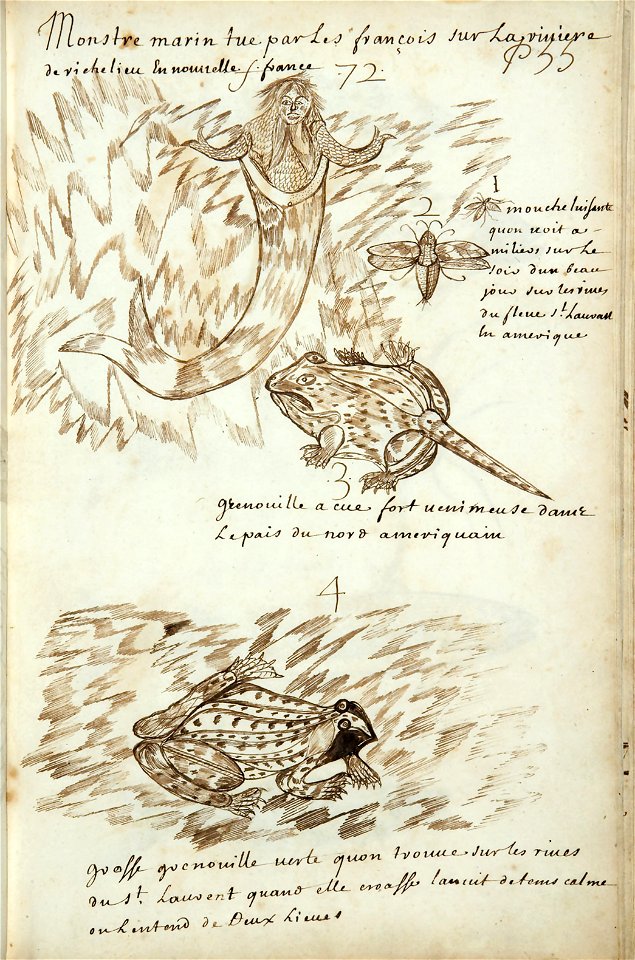 Monstre marin tue par Les françois sur La riviere
de richelieu En nouvelle france
72
P 55
1
mouche luisante
quon voit a
miliers sur Le
soir dun beau
jour sur les rives
du fleuve st. Lauvant
En amerique
2
3
grenouille a cue fort venimeuse dans
Le pais du nord ameriquain
4
grosse grenouille verte quon trouve sur les rives
du st. Lauvent quand elle croasse lanuit de tems calme
on Lentend de Deux Lieues